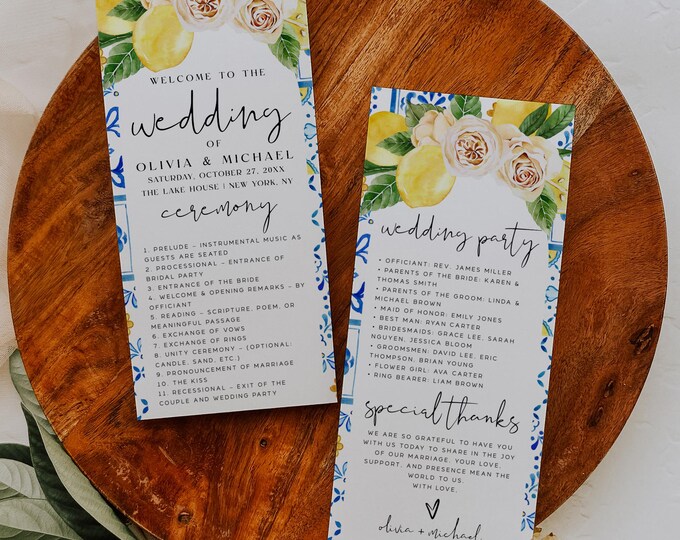 WELCOME TO THE
wedding
OF
OLIVIA & MICHAEL
SATURDAY, OCTOBER 27, 20XX
THE LAKE HOUSE | NEW YORK, NY
ceremony
1. PRELUDE – INSTRUMENTAL MUSIC AS
GUESTS ARE SEATED
2. PROCESSIONAL – ENTRANCE OF
BRIDAL PARTY
3. ENTRANCE OF THE BRIDE
4. WELCOME & OPENING REMARKS – BY
OFFICIANT
5. READING – SCRIPTURE, POEM, OR
MEANINGFUL PASSAGE
6. EXCHANGE OF VOWS
7. EXCHANGE OF RINGS
8. UNITY CEREMONY – (OPTIONAL:
CANDLE, SAND, ETC.)
9. PRONOUNCEMENT OF MARRIAGE
10. THE KISS
11. RECESSIONAL – EXIT OF THE
COUPLE AND WEDDING PARTY
wedding party
• OFFICIANT: REV. JAMES MILLER
• PARENTS OF THE BRIDE: KAREN &
THOMAS SMITH
• PARENTS OF THE GROOM: LINDA &
MICHAEL BROWN
• MAID OF HONOR: EMILY JONES
• BEST MAN: RYAN CARTER
• BRIDESMAIDS: GRACE LEE, SARAH
NGUYEN, JESSICA BLOOM
• GROOMSMEN: DAVID LEE, ERIC
THOMPSON, BRIAN YOUNG
• FLOWER GIRL: AVA CARTER
• RING BEARER: LIAM BROWN
special thanks
WE ARE SO GRATEFUL TO HAVE YOU
WITH US TODAY TO SHARE IN THE JOY
OF OUR MARRIAGE. YOUR LOVE,
SUPPORT, AND PRESENCE MEAN THE
WORLD TO US.
WITH LOVE,
olivia + michael